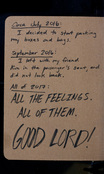 Circa July 2016:
I decided to start packing
my boxes and bags.
September 2016:
I left with my friend
Eva in the promiser's boat, and
did not look back.
As of 2018:
ALL THE FEELINGS.
ALL OF THEM.
GOOD LORD!